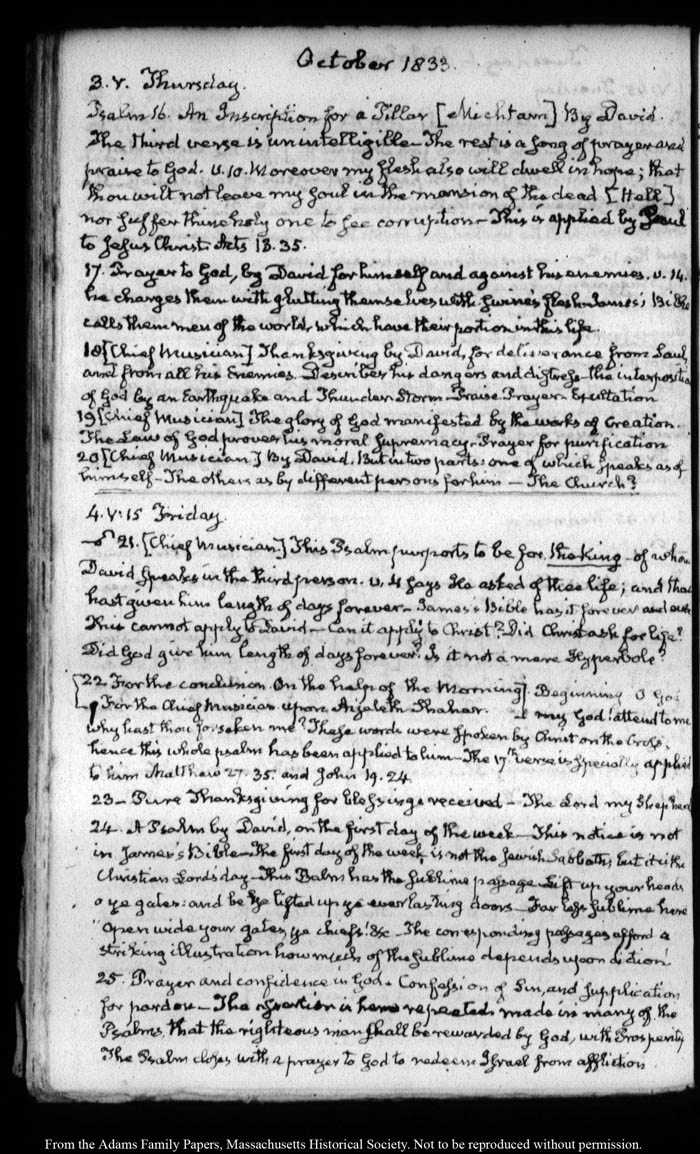 October 1833.
3. V. Thursday.
Psalm 16. An Inscription for a Pillar [Michtam] By David.
The third verse is unintelligible—The rest is a song of prayer and
praise to God. v. 10. Moreover my flesh also will dwell in hope; that
thou wilt not leave my soul in the mansion of the dead [Hell]
nor suffer thine holy one to see corruption—This is applied by Paul
to Jesus Christ. Acts 13. 35.
17. Prayer to God, by David for himself and against his enemies. v. 14.
he charges them with glutting themselves with swine's flesh James's Bible
calls them men of the world, which have their portion in this life.
18 [Chief Musician] Thanksgiving by David, for deliverance from Saul,
and from all his Enemies. Describes his dangers and distress—the interposition
of God by an Earthquake and Thunder Storm—Praise Prayer—Exultation
19 [Chief Musician] The glory of God manifested by the works of Creation.
The Law of God proves his moral supremacy—Prayer for purification
20 [Chief Musician] By David. But in two parts: one of which speaks as of
himself—The other as by different persons for him — The Church?
4. V:15 Friday.
21. [Chief Musician] This Psalm purports to be for the king—of whom
David speaks in the third person. v. 4 says He asked of thee life; and thou
hast given him length of days forever—James's Bible has it forever and ever
This cannot apply to David—Can it apply to Christ? Did Christ ask for life?
Did God give him length of days forever? Is it not a mere Hyperbole?
[22. For the conclusion. On the help of the Morning]. Beginning O God
For the Chief Musician upon Aijeleth Shahar. my God! attend to me
why hast thou forsaken me? These words were spoken by Christ on the Cross;
hence this whole psalm has been applied to him—The 17th verse is specially applied
to him Matthew 27. 35. and John 19. 24.
23—Pure Thanksgiving for blessings received—The Lord my Shepherd
24. A Psalm by David, on the first day of the week—This notice is not
in James's Bible—The first day of the week is not the Jewish Sabbath, but it is the
Christian Lords day—This Psalm has the sublime passage Lift up your heads
o ye gates: and be ye lifted up ye everlasting doors—Far less sublime here
"open wide your gates, ye chiefs! &c—The corresponding passages afford a
striking illustration how much of the sublime depends upon diction
25. Prayer and confidence in God. Confession of Sin, and supplication
for pardon—The assertion is here repeated made in many of the
Psalms, that the righteous man shall be rewarded by God, with Prosperity
The Psalm closes with a prayer to God to redeem Israel from affliction
From the Adams Family Papers, Massachusetts Historical Society. Not to be reproduced without permission.